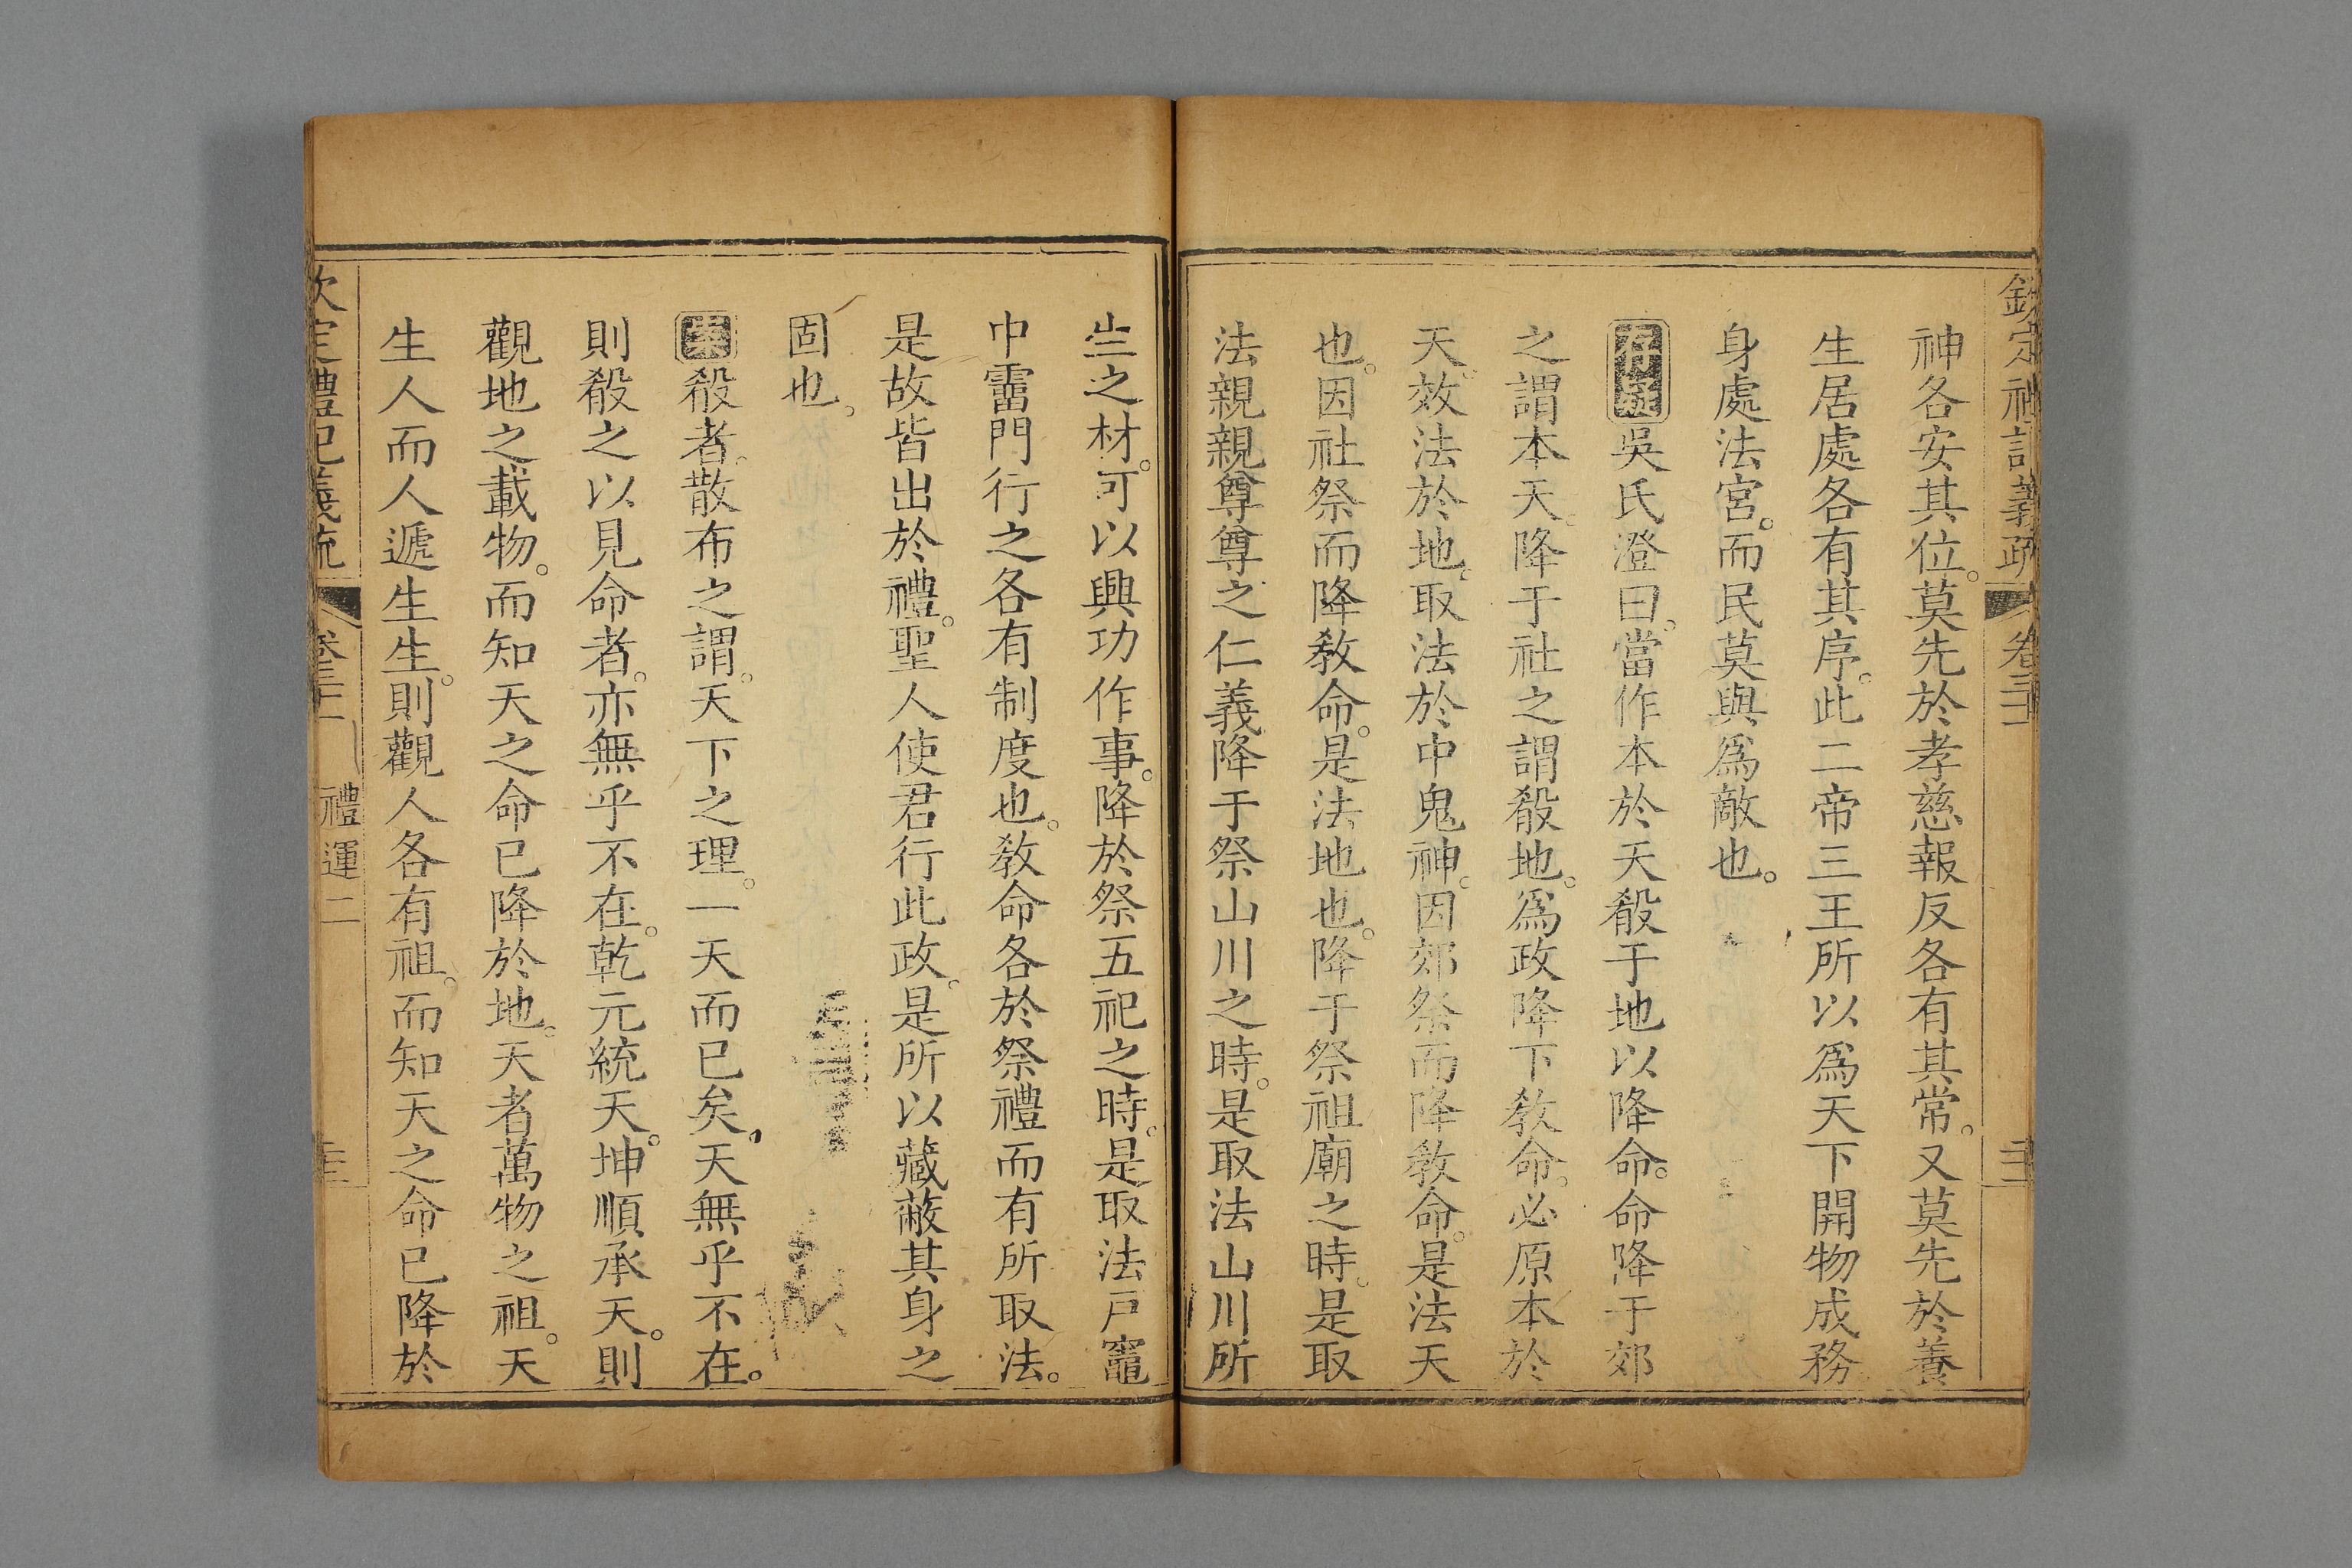 欽定禮記義疏 卷三十一
神各安其位。莫先於孝慈報反各有其常。又莫先於養
生居處各有其序。此二帝三王所以爲天下開物成務
身處法宮。而民莫與爲敵也。
存疑吳氏澄曰。當作本於天殽于地以降命。命降于郊
之謂本天。降于社之謂殽地。爲政降下敎命。必原本於
天。效法於地。取法於中鬼神。因郊祭而降敎命。是法天
也。因社祭而降敎命。是法地也。降于祭祖廟之時。是取
法親親尊尊之仁義降于祭山川之時。是取法山川所
生之材。可以興功作事。降於祭五祀之時。是取法戸竈
中霤門行之各有制度也。敎命各於祭禮而有所取法。
是故皆出於禮。聖人使君行此政。是所以藏蔽其身之
固也。
案殽者。散布之謂。天下之理。一天而已矣。天無乎不在。
則殽之以見命者。亦無乎不在。乾元統天。坤順承天。則
觀地之載物。而知天之命已降於地。天者萬物之祖。天
生人而人遞生生。則觀人各有祖。而知天之命已降於
欽定禮記義疏 卷三十一 禮運二